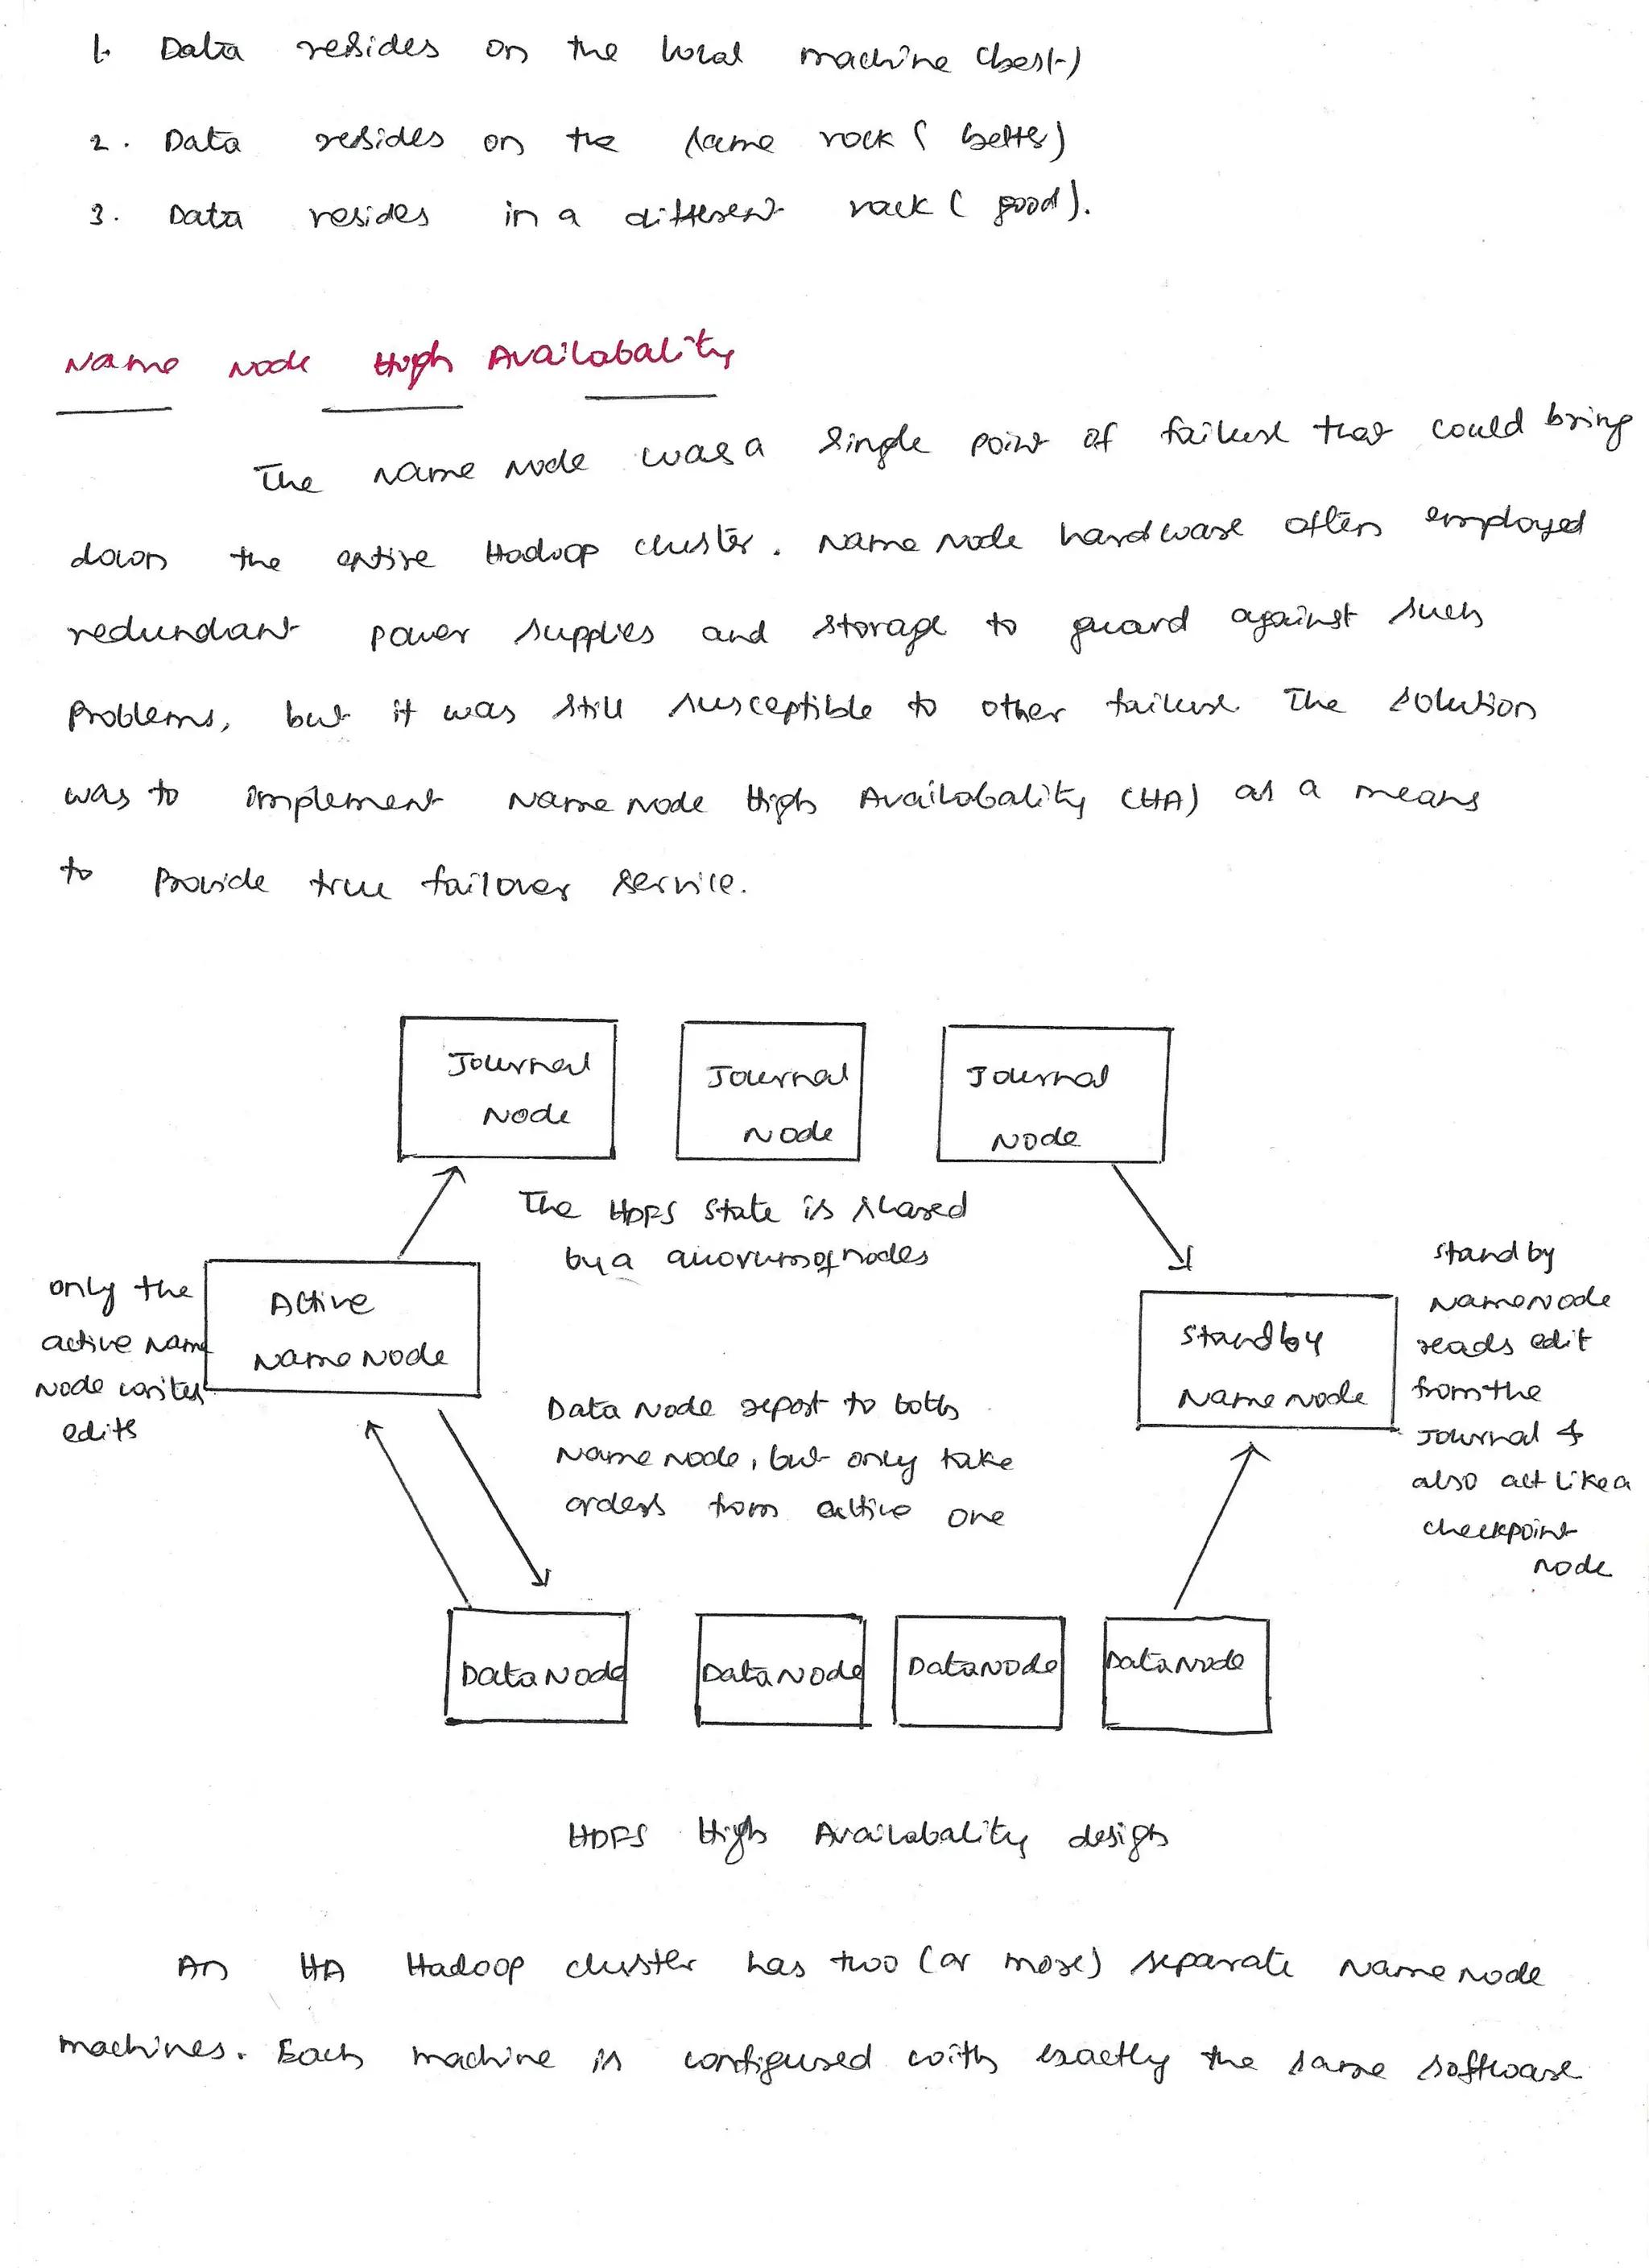 1. Data resides on the local machine (best)
2. Data resides on the same rack (better)
3. Data resides in a different rack (good).
Name Node High Availabality
The Name Node was a single point of failure that could bring
down the entire Hadoop cluster. Name Node hardware often employed
redundant power supplies and storage to guard against such
problems, but it was still susceptible to other failure. The solution
was to implement Name Node High Availabality (HA) as a means
to Provide true failover service.
Journal
Node
Journal
Node
Journal
Node
The HDFS State is shared
by a quorum of nodes
only the
active Name
Node writes
edits
Active
Name Node
Standby
Name Node
Stand by
NameNode
reads edit
from the
Journal &
also act like a
checkpoint
node
Data Node report to both
Name Node, but only take
orders from active one
DataNode
DataNode
DataNode
DataNode
HDFS High Availabality design
An HA Hadoop cluster has two (or more) separate Name Node
machines. Each machine is configured with exactly the same software